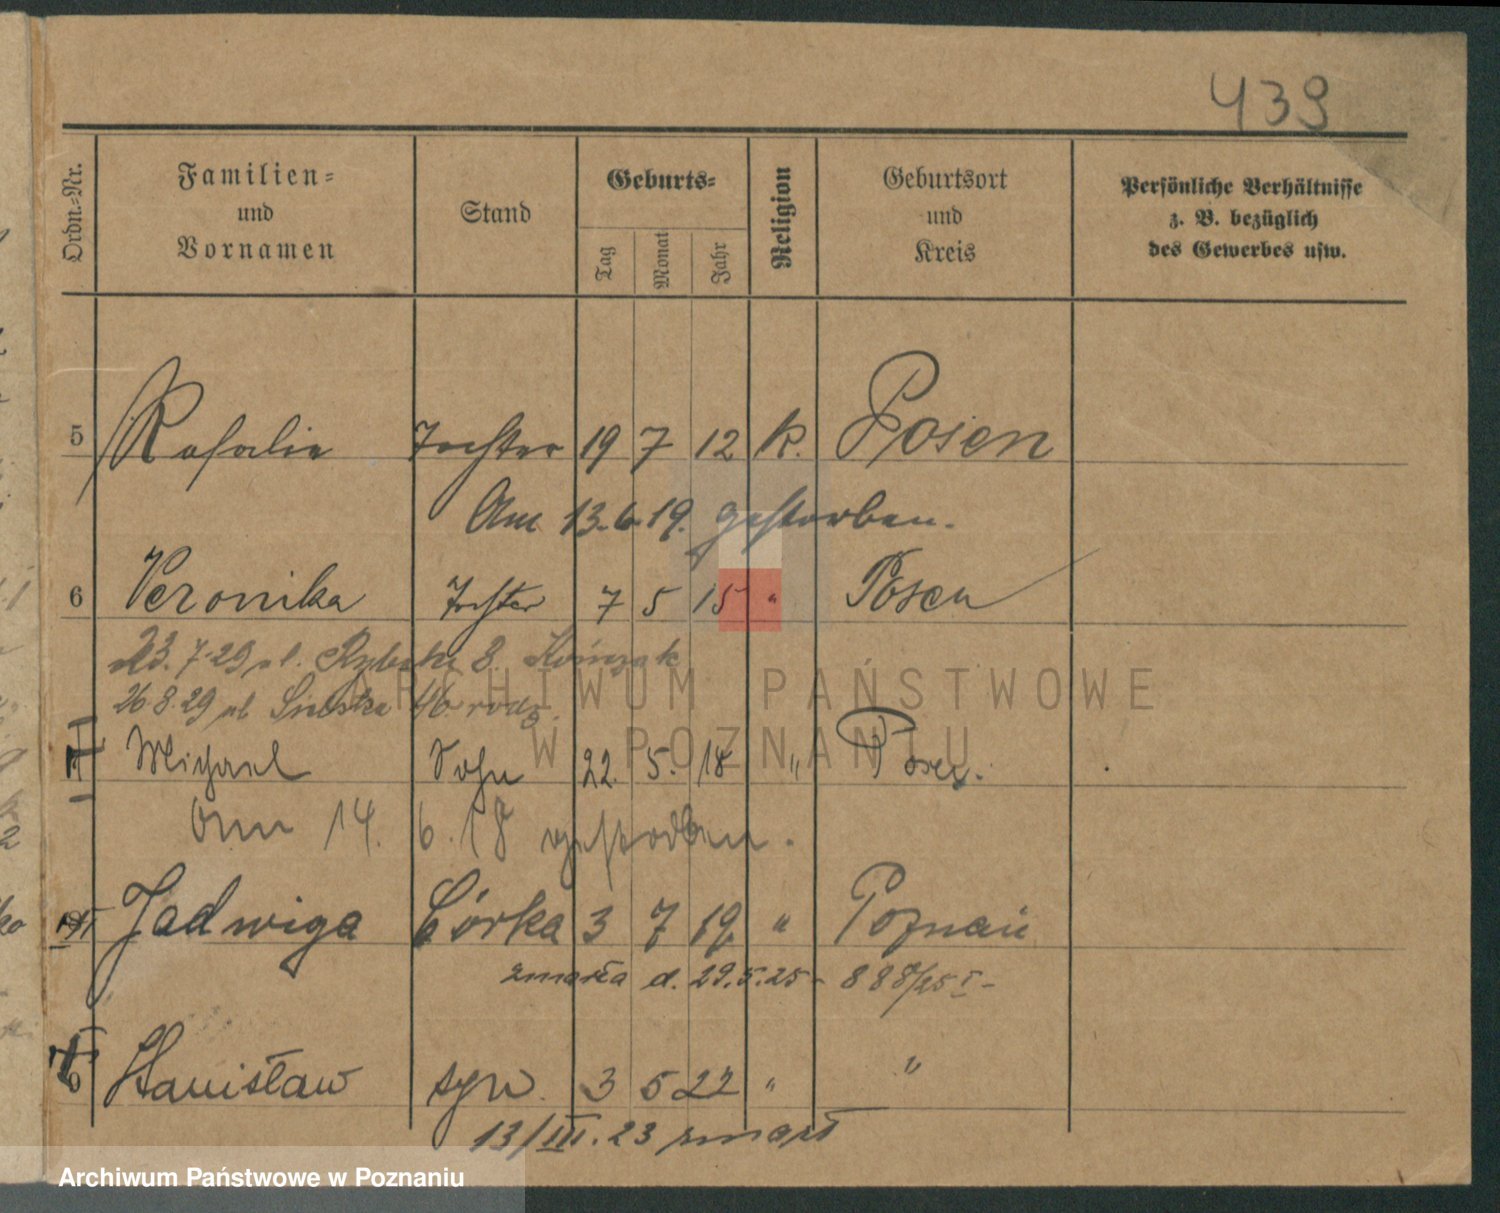 439
Ordn.-Nr.
Familien-
und
Vornamen
Stand
Geburts-
Tag
Monat
Jahr
Religion
Geburtsort
und
Kreis
Persönliche Verhältnisse
z. B. bezüglich
des Gewerbes usw.
5 Rosalie Tochter 19 7 12 k. Posen
Am 13.6.19. gestorben.
6 Veronika Tochter 7 5 15 " Posen
23.7.29 ul. Rybaki 8.
26.8.29 ul 46. rodz.
Michael Sohn 22. 5. 18 " Posen.
Am 14. 6. 18 gestorben.
Jadwiga Córka 3 7 19 " Poznań
zmarła d. 29.5.25 - 888/25 I -
9 Stanisław syn. 3 5 22 " "
13/III.23 zmarł
ARCHIWUM PAŃSTWOWE
W POZNANIU
Archiwum Państwowe w Poznaniu